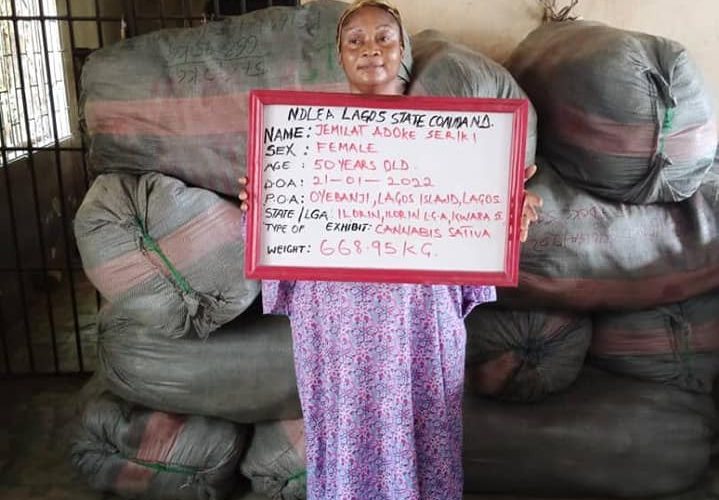 NDLEA LAGOS STATE COMMAND.
NAME: JEMILAT ADOKE SERIKI
SEX: FEMALE
AGE: 50 YEARS OLD.
D.O.A: 21-01-2022
P.O.A: OYEBANJI, LAGOS ISLAND, LAGOS
STATE/LGA: ILORIN, ILORIN LGA, KWARA S.
TYPE OF EXHIBIT: CANNABIS SATIVA
WEIGHT: 668.95KG.